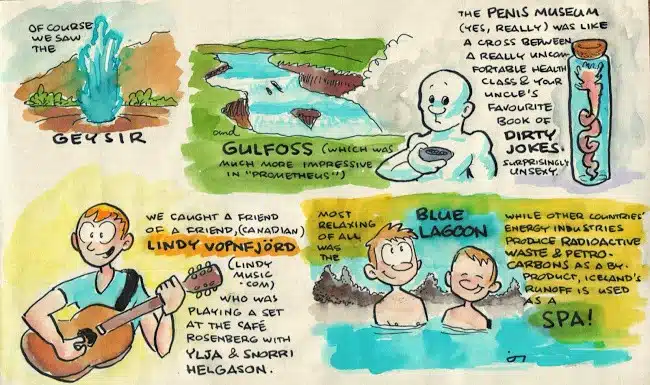 OF COURSE
WE SAW
THE
GEYSIR
and
GULFOSS (WHICH WAS
MUCH MORE IMPRESSIVE
IN "PROMETHEUS")
THE PENIS MUSEUM
(YES, REALLY) WAS LIKE
A CROSS BETWEEN
A REALLY UNCOM-
FORTABLE HEALTH
CLASS & YOUR
UNCLE'S
FAVOURITE
BOOK OF
DIRTY
JOKES.
SURPRISINGLY
UNSEXY.
WE CAUGHT A FRIEND
OF A FRIEND, (CANADIAN)
LINDY VOPNFJÖRD
(LINDY
MUSIC
.COM)
WHO WAS
PLAYING A SET
AT THE CAFÉ
ROSENBERG WITH
YLJA & SNORRI
HELGASON.
MOST
RELAXING
OF ALL
WAS
THE
BLUE
LAGOON
WHILE OTHER COUNTRIES'
ENERGY INDUSTRIES
PRODUCE RADIOACTIVE
WASTE & PETRO-
CARBONS AS A BY-
PRODUCT, ICELAND'S
RUNOFF IS USED
AS A
SPA!